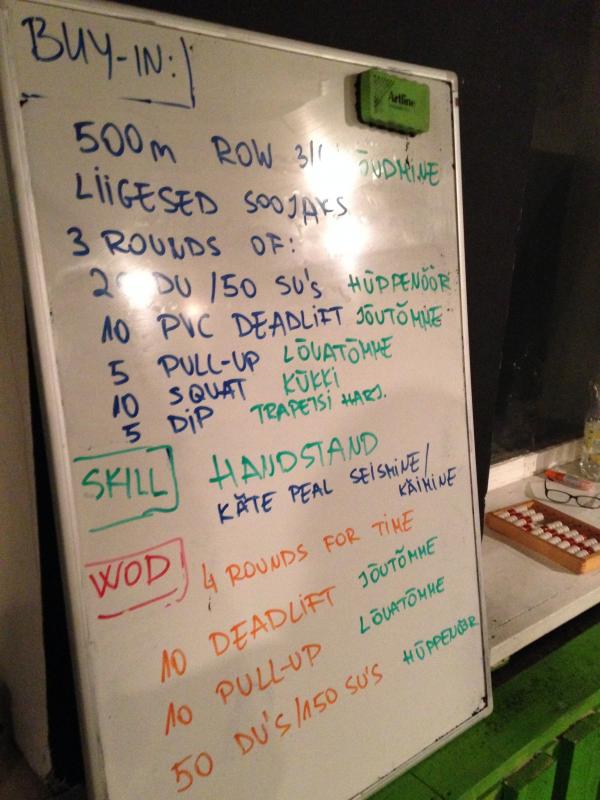 BUY-IN:
Artline
500m ROW
LIIGESED SOOJAKS
3 ROUNDS OF:
DU /50 SU'S HÜPPENÖÖR
10 PVC DEADLIFT JÕUTÕMME
5 PULL-UP LÕUATÕMME
10 SQUAT KÜKKI
5 DIP TRAPETSI HARJ.
SKILL HANDSTAND
KÄTE PEAL SEISMINE/
KÄIMINE
WOD 4 ROUNDS FOR TIME
10 DEADLIFT JÕUTÕMME
10 PULL-UP LÕUATÕMME
50 DU'S/150 SU'S HÜPPENÖÖR